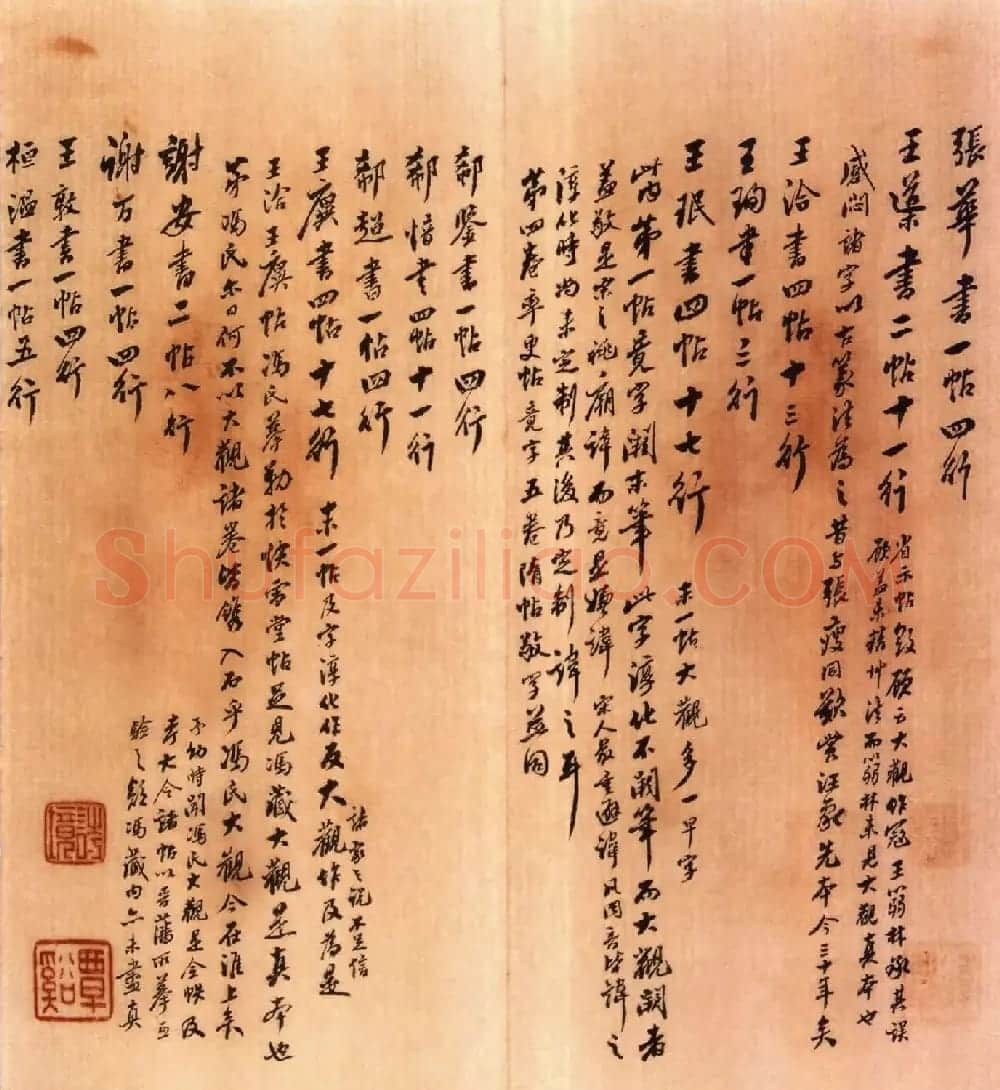 張華書一帖四行
王廙書二帖十一行
省示帖毀頋云大觀作冠王蒻林譏其誤
頋蓋未精艸法而蒻林未見大觀真本也
感悶諸字以古篆法為之昔与張瘦同歎賞汪氣先本今三十年矣
王洽書四帖十三行
王珣書一帖三行
王珉書四帖十七行
末一帖大觀多一早字
此内第一帖竟字闕末筆此字淳化不闕筆而大觀闕者
蓋敬是宋之祧廟諱而竟是嫌諱宋人最重避諱凡同音皆諱之
淳化時尚未定制其後乃定制諱之耳
第四卷率更帖竟字五卷隋帖敬字並同
郗鑒書一帖四行
郗愔書四帖十一行
郗超書一帖四行
王廙書四帖十七行
末一帖及字淳化作反大觀作及為是
諸家之說不足信
王洽王廙帖馮氏摹勒於快雪堂帖足見馮藏大觀是真本也
第馮氏尔日何不以大觀諸卷皆鐫入石乎馮氏大觀今在淮上矣
予幼時聞馮氏大觀是全帙及
考大令諸帖以晉藩所摹互
驗之疑馮藏内亦未盡真
謝安書二帖八行
謝万書一帖四行
王敦書一帖四行
桓溫書一帖五行
覃谿
Shufaziliao.COM